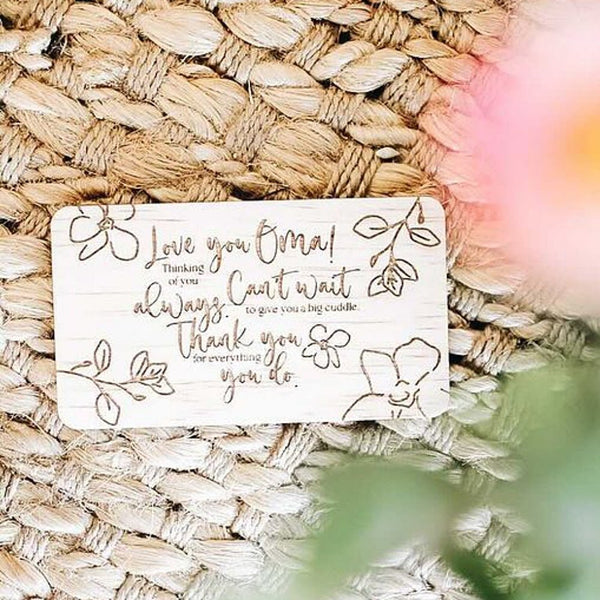 Love you Oma!
Thinking
of you
always. Can't wait
to give you a big cuddle.
Thank you
for everything
you do.